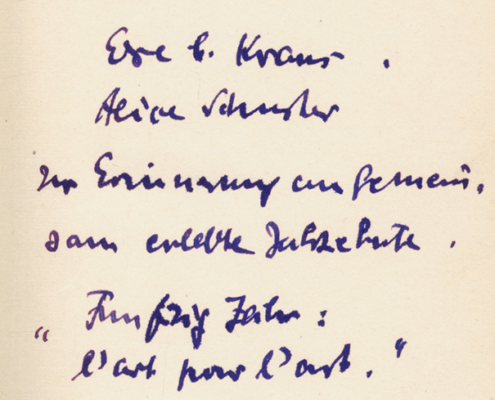 b. Kraus.
Alice Schuster
zur Erinnerung an gemein-
sam erlebte Jahrzehnte.
"Fünfzig Jahre:
l'art pour l'art."